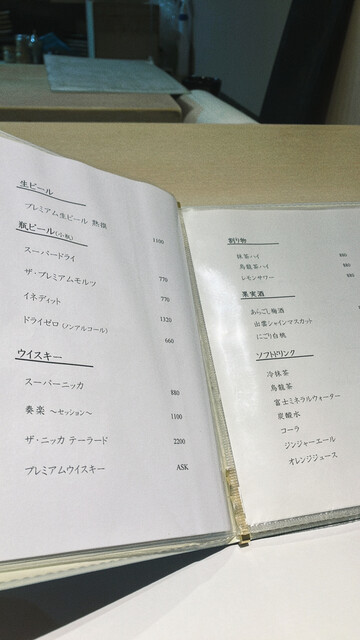 生ビール
プレミアム生ビール 熟撰
1100
瓶ビール(小瓶)
スーパードライ
770
ザ・プレミアムモルツ
770
イネディット
1320
ドライゼロ(ノンアルコール)
660
ウイスキー
スーパーニッカ
880
奏楽 〜セッション〜
1100
ザ・ニッカ テーラード
2200
プレミアムウイスキー
ASK
割り物
抹茶ハイ
880
烏龍茶ハイ
レモンサワー
果実酒
あらごし梅酒
出雲シャインマスカット
にごり白桃
ソフトドリンク
冷抹茶
烏龍茶
富士ミネラルウォーター
炭酸水
コーラ
ジンジャーエール
オレンジジュース